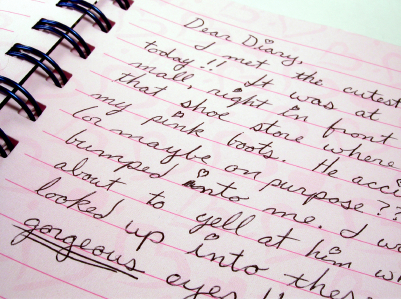 Dear Diary,
I met the cutest
today!! It was at
small, right in front
that shoe store where
my pink boots. He acci
(or maybe on purpose??
bumped into me. I w
about to yell at him wh
looked up into thes
gorgeous eyes!!